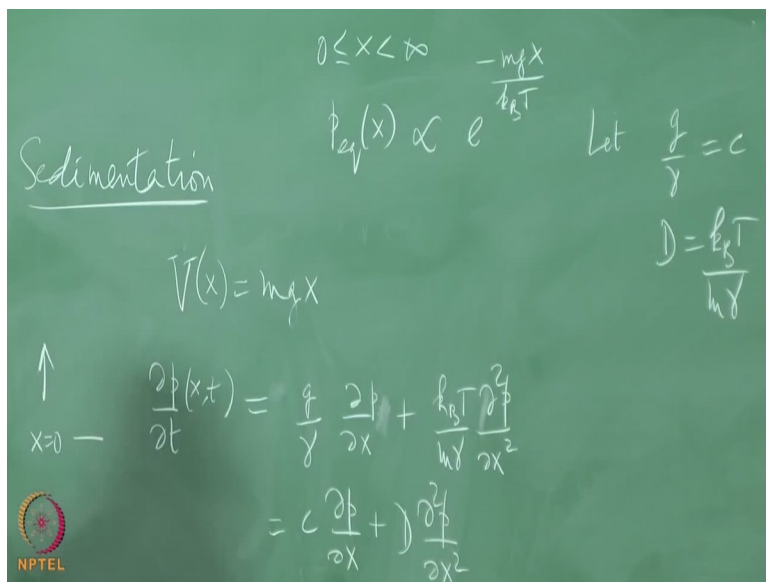 0 ≤ x < ∞
p_eq(x) ∝ e^(-mgx/k_BT)
Let g/γ = c
Sedimentation
D = k_BT/mγ
V(x) = mgx
↑
x=0 —
∂p(x,t)/∂t = g/γ ∂p/∂x + k_BT/mγ ∂²p/∂x²
= c ∂p/∂x + D ∂²p/∂x²
NPTEL